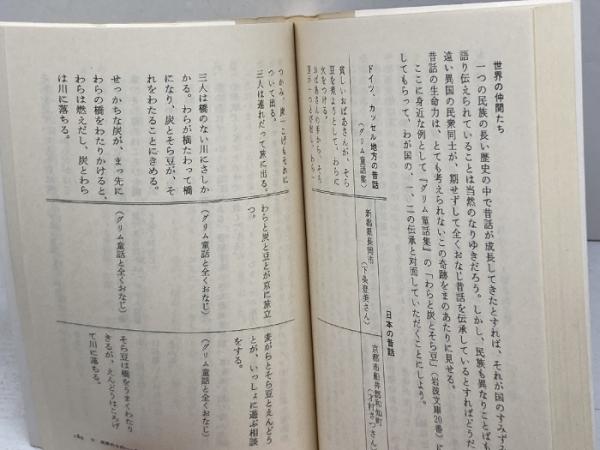 世界の仲間たち
一つの民族の長い歴史の中で昔話が成長してきたとすれば、それが国のすみずみ
語り伝えられていることは当然のなりゆきだろう。しかし、民族も異なりことばも
遠い異国の民衆同士が、期せずして全くおなじ昔話を伝承しているとすればどうだ
昔話の生命力は、とても考えられないこの奇跡をまのあたりに見せる。
ここに身近な例として『グリム童話集』の「わらと炭とそら豆」（岩波文庫20番）に
してもらって、わが国の、一、二の伝承と対面していただくことにしよう。
ドイツ、カッセル地方の昔話
（グリム童話集）
日本の昔話
新潟県長岡市
（下条登美さん）
京都市船井郡和知町
貧しいおばあさんが、そら
豆を煮ようとして、わらに
火をつける。
つかみ、炭一こげもそれに
ついて出る。
三人は連れだって旅に出る。
わらと炭と豆とが京に旅立
つ。
麦がらとそら豆とえんどう
とが、いっしょに遊ぶ相談
をする。
三人は橋のない川にさしか
かる。わらが横たわって橋
になり、炭とそら豆が、そ
れをわたることにきめる。
（グリム童話と全くおなじ）
（グリム童話と全くおなじ）
せっかちな炭が、まっ先に
わらの橋をわたりかけると、
わらは燃えだし、炭とわら
は川に落ちる。
（グリム童話と全くおなじ）
そら豆は橋をうまくわたり
きるが、えんどうはころげ
て川に落ちる。